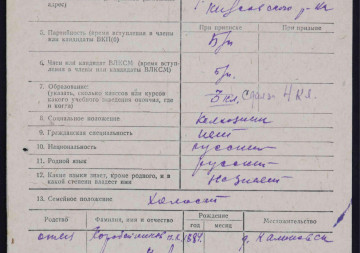 адрес)
р-на
При приписке При призыве
5. Партийность (время вступления в члены
или кандидаты ВКП(б)
Б/п
6. Член или кандидат ВЛКСМ (время вступ-
ления в члены или кандидаты ВЛКСМ)
б/п.
7. Образование:
(указать, сколько классов или курсов
какого учебного заведения окончил, где
и когда)
кл. 4 кл.
8. Социальное положение
9. Гражданская специальность
нет
10. Национальность
русский
11. Родной язык
русский
12. Какие языки знает, кроме родного, и в
какой степени владеет ими
не знает
13. Семейное положение
Холост
Родство Фамилия, имя и отчество Рождение Местожительство
год месяц
отец Коробейников